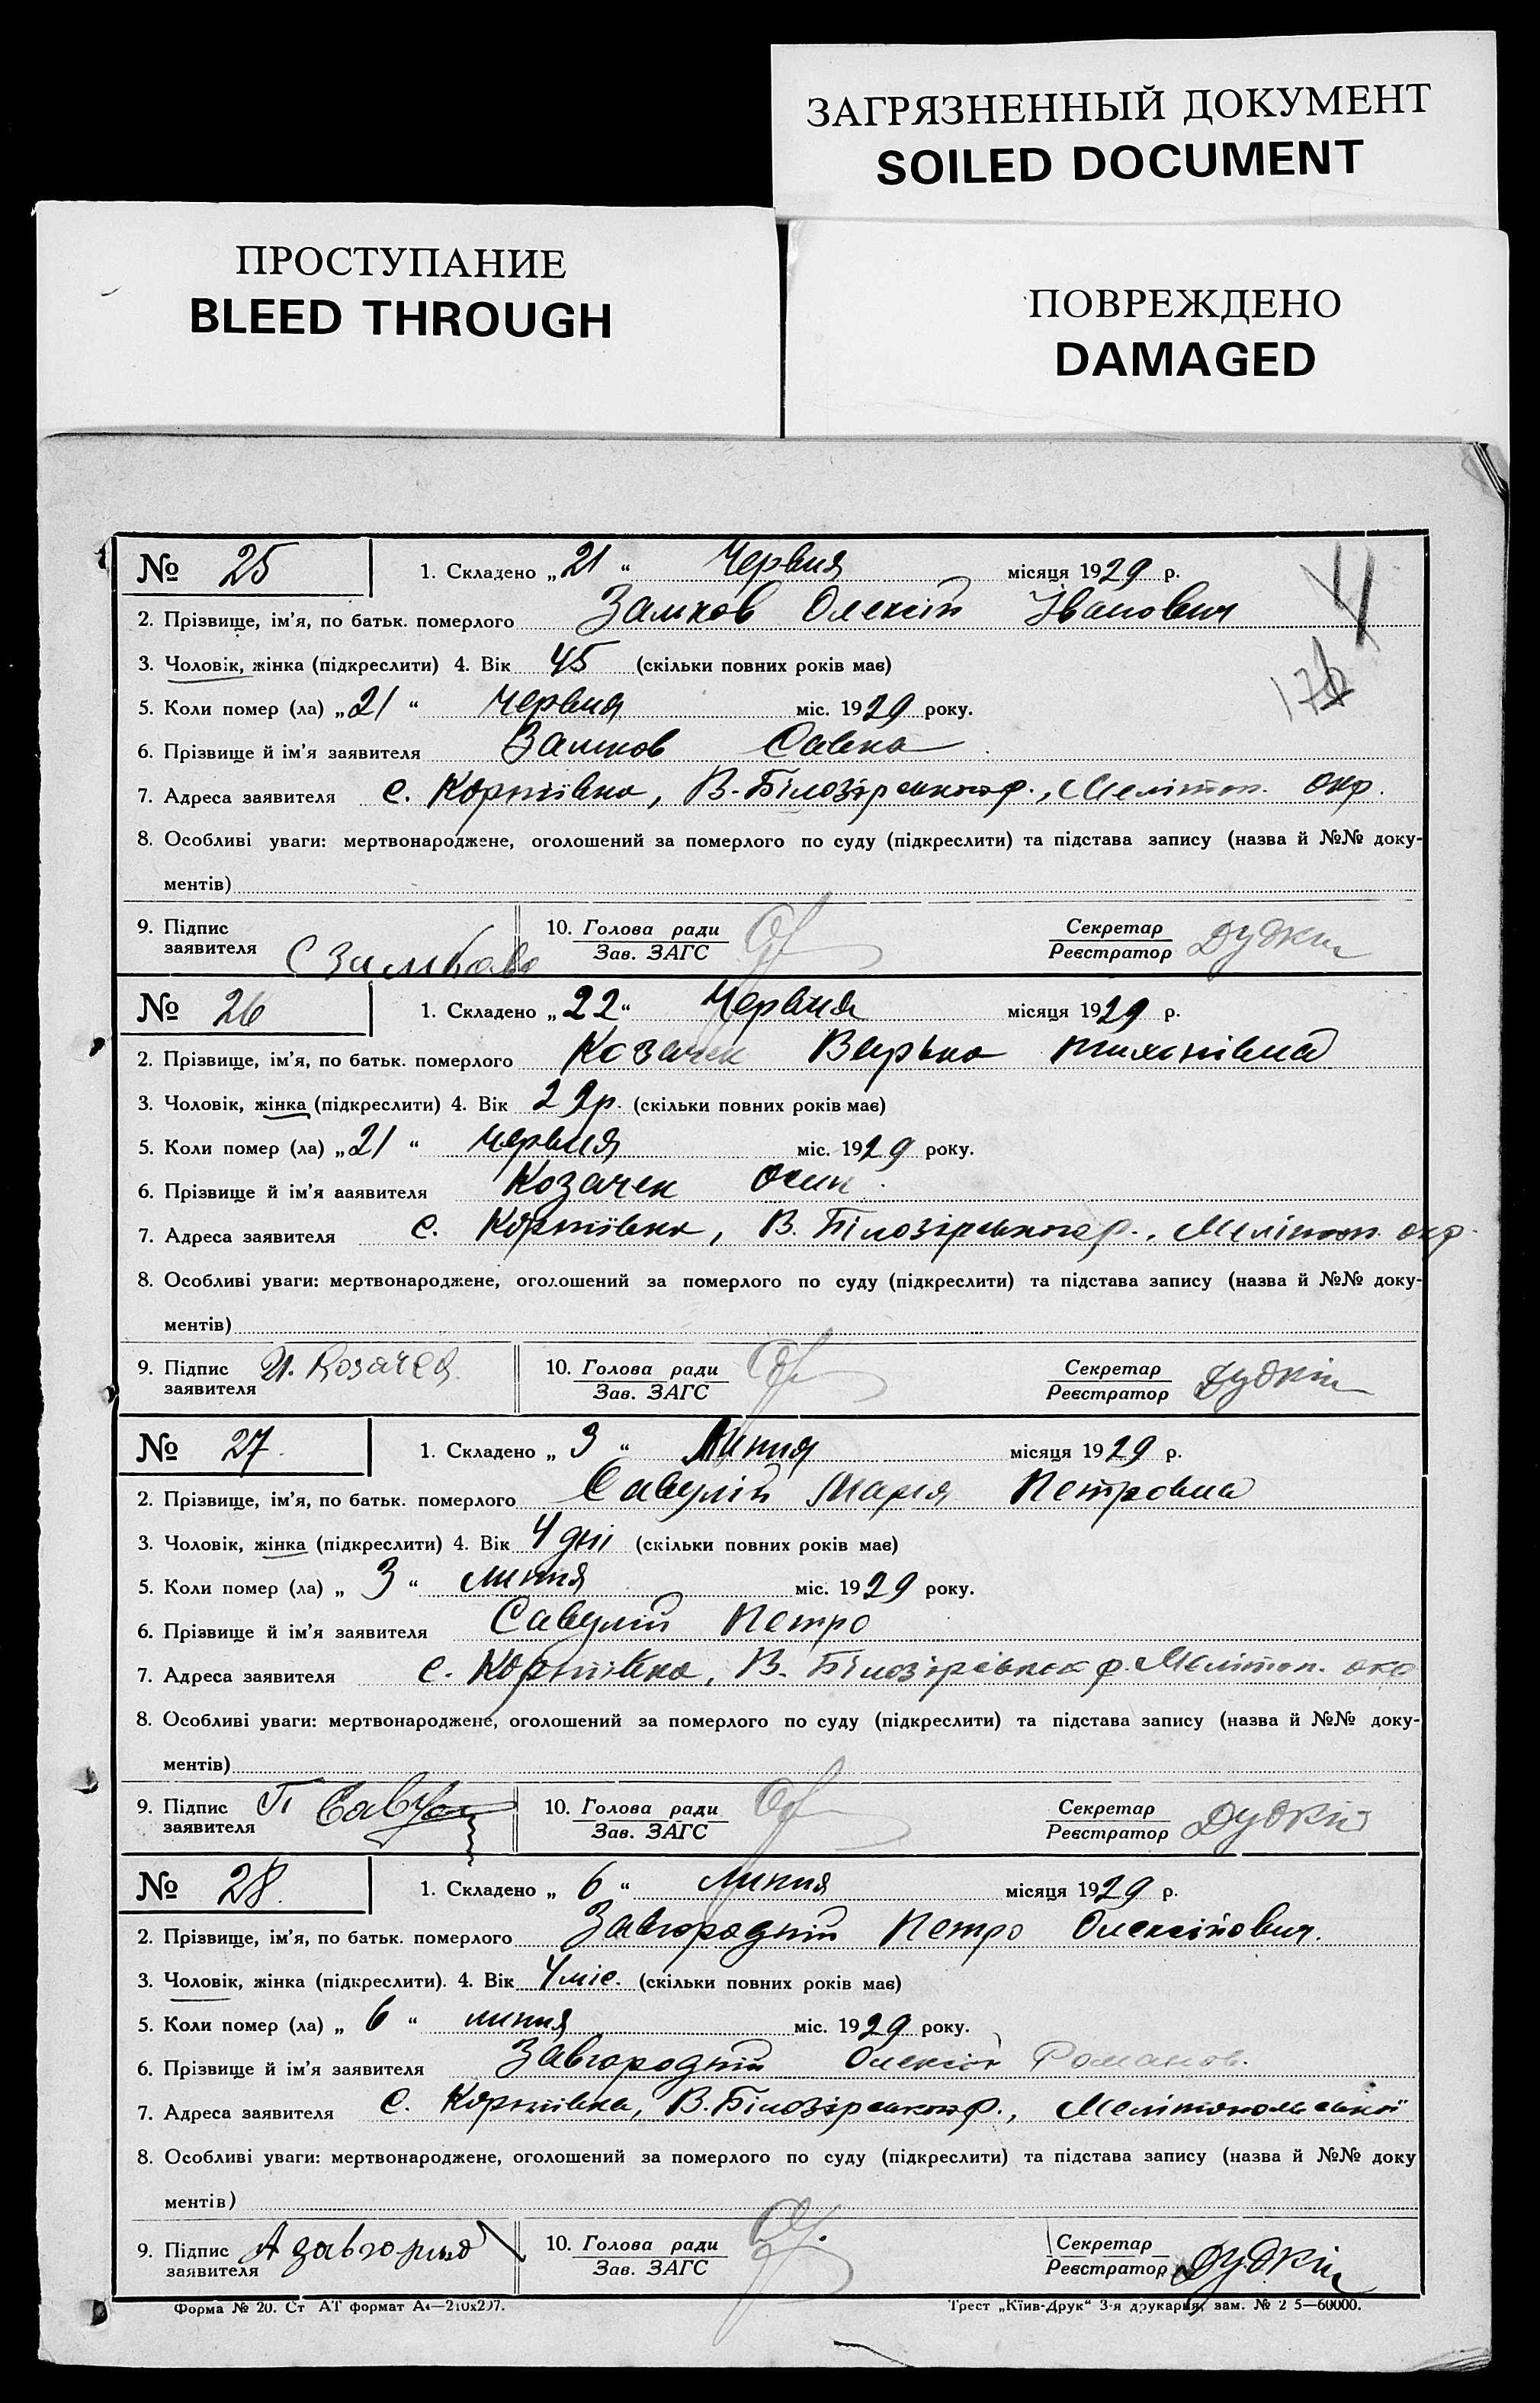 ЗАГРЯЗНЕННЫЙ ДОКУМЕНТ
SOILED DOCUMENT
ПРОСТУПАНИЕ
BLEED THROUGH
ПОВРЕЖДЕНО
DAMAGED
№ 25 1. Складено „21“ Червня місяця 1929 р.
2. Прізвище, ім'я, по батьк. померлого Замков Олексій Іванович
3. Чоловік, жінка (підкреслити) 4. Вік 45 (скільки повних років має)
176
5. Коли помер (ла) „21“ червня міс. 1929 року.
6. Прізвище й ім'я заявителя Замков Савка
7. Адреса заявителя с. Кортівка, В-Білозірськогор., Мелітоп. окр.
8. Особливі уваги: мертвонароджене, оголошений за померлого по суду (підкреслити) та підстава запису (назва й №№ доку-
ментів)
9. Підпис заявителя С Замково 10. Голова ради Зав. ЗАГС Секретар Реєстратор Дудкін
№ 26 1. Складено „22“ Червня місяця 1929 р.
2. Прізвище, ім'я, по батьк. померлого Козачек Варька
3. Чоловік, жінка (підкреслити) 4. Вік 22р. (скільки повних років має)
5. Коли помер (ла) „21“ червня міс. 1929 року.
6. Прізвище й ім'я ааявителя Козачек Осип
7. Адреса заявителя с. Кортівка, В. Білозірськогор., Мелітоп. окр.
8. Особливі уваги: мертвонароджене, оголошений за померлого по суду (підкреслити) та підстава запису (назва й №№ доку-
ментів)
9. Підпис заявителя И. Козачек 10. Голова ради Зав. ЗАГС Секретар Реєстратор Дудкін
№ 27. 1. Складено „3“ Липня місяця 1929 р.
2. Прізвище, ім'я, по батьк. померлого Савулій Марія Петровна
3. Чоловік, жінка (підкреслити) 4. Вік 4 дні (скільки повних років має)
5. Коли помер (ла) „3“ липня міс. 1929 року.
6. Прізвище й ім'я заявителя Савулій Петро
7. Адреса заявителя с. Кортівка, В. Білозірськ р. Мелітоп. окр
8. Особливі уваги: мертвонароджене, оголошений за померлого по суду (підкреслити) та підстава запису (назва й №№ доку-
ментів)
9. Підпис заявителя П Савул 10. Голова ради Зав. ЗАГС Секретар Реєстратор Дудкін
№ 28. 1. Складено „6“ липня місяця 1929 р.
2. Прізвище, ім'я, по батьк. померлого Завгородній Петро Олексійович.
3. Чоловік, жінка (підкреслити). 4. Вік 4 міс. (скільки повних років має)
5. Коли помер (ла) „6“ липня міс. 1929 року.
6. Прізвище й ім'я заявителя Завгородній Олексій Романов.
7. Адреса заявителя с. Кортівка, В. Білозірськогор., Мелітопольської
8. Особливі уваги: мертвонароджене, оголошений за померлого по суду (підкреслити) та підстава запису (назва й №№ доку
ментів)
9. Підпис заявителя А Завгорныд 10. Голова ради Зав. ЗАГС Секретар Реєстратор Дудкін
Форма № 20. Ст АТ формат А4—210х297. Трест „Київ-Друк“ 3-я друкарня, зам. № 2 5—60000.